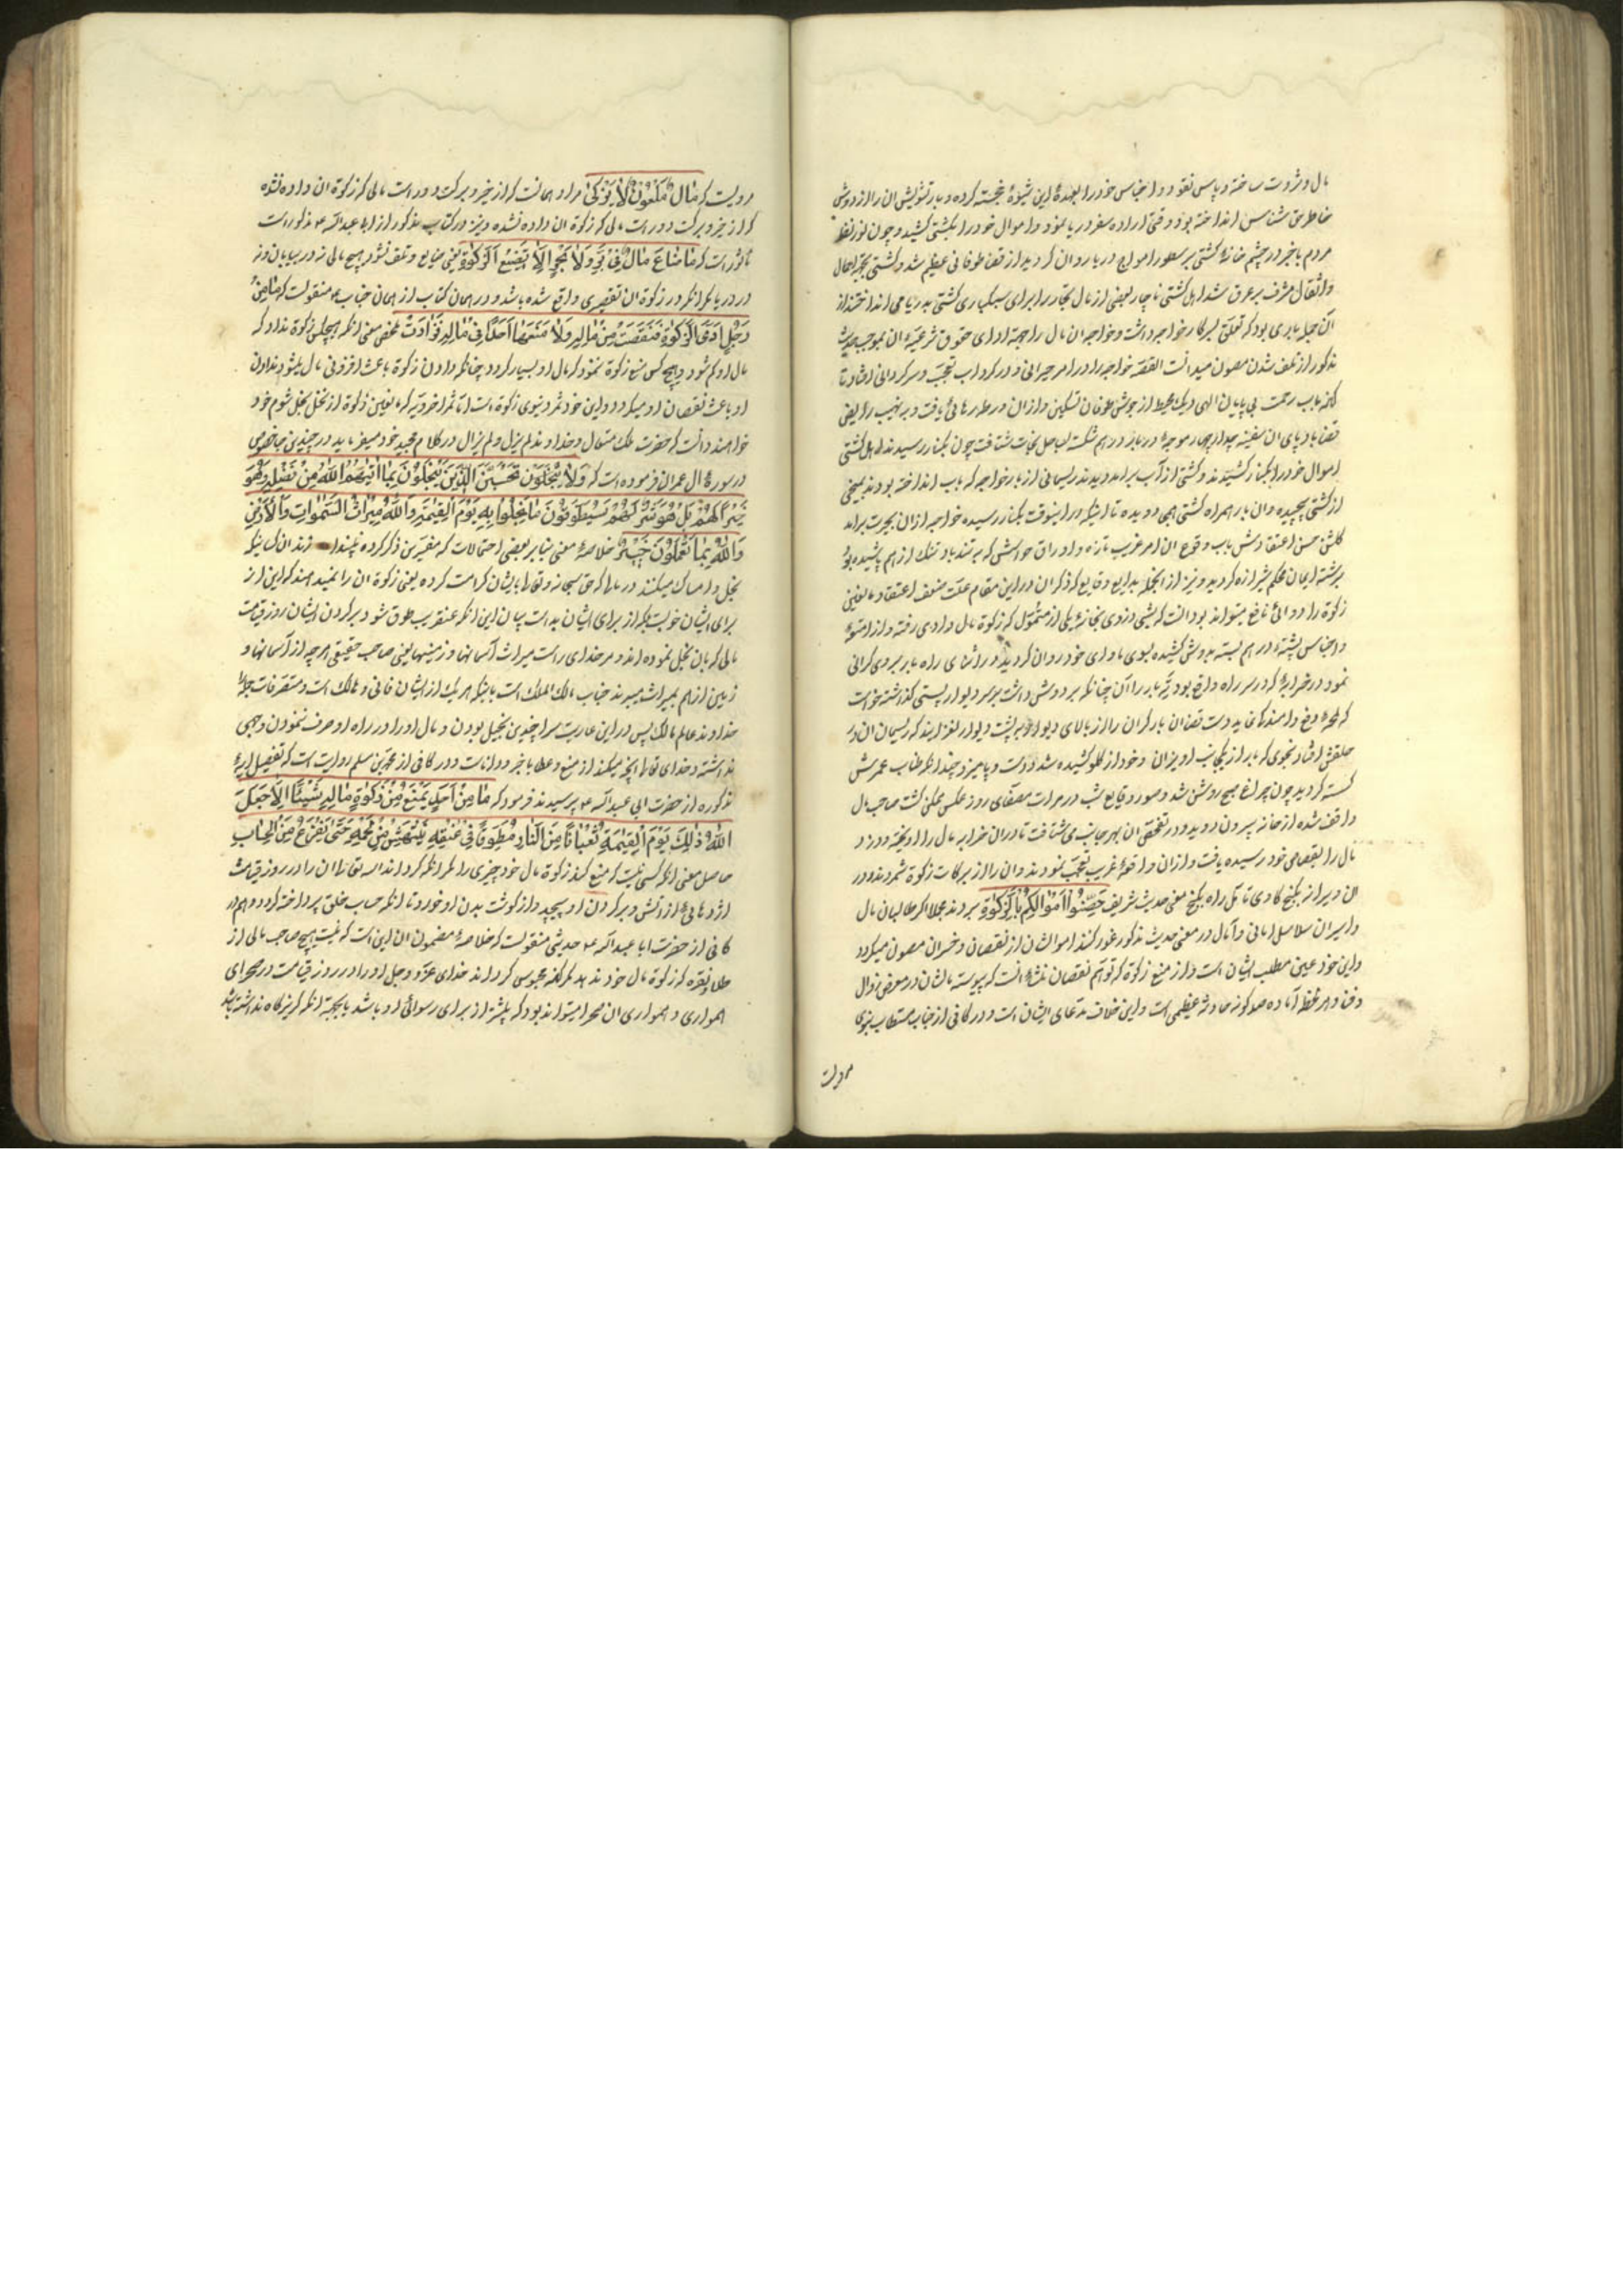 مال و ثروت ساخته و پاس نقود و اجناس خود را بعهدهٔ این شیوهٔ خجسته کرده و بار تشویش آن را از دوش
خاطر حق شناس انداخته بود وقتی اراده سفر دریا نمود و اموال خود را بکشتی کشید و چون نوز نظر
مردم باخبر در چشم خانهٔ کشتی بر سطور امواج دریا روان کردید از قضا طوفانی عظیم شد و کشتی بجر احمال
و اثقال مشرف بر غرق شد اهل کشتی ناچار بعضی از مال تجار را برای سبکباری کشتی بدریا می انداختند از
آن جمله باری بود که تعلق بسرکار خواجه داشت و خواجه آن مال را بجهة ادای حقوق شرعیهٔ آن بموجب حدیث
مذکور از تلف شدن مصون میدانست القصه خواجه را در امر حیرانی و در کرداب تعجب و سرکردانی افتاد تا
آنکه بآب رحمت بی پایان الهی دیک محیط از جوش طوفان تسکین و از آن ورطه رهائی یافت و بر نهیب رایض
قضا بادپای آن سفینه چدار چهار موجهٔ دریا را در هم شکست بساحل نجات شتافت چون بکنار رسیدند اهل کشتی
اموال خود را بکنار کشیدند و کشتی از آب برآمد دیدند ریسمانی از بار خواجه که بآب انداخته بودند بمیخی
از کشتی پیچیده و آن بار همراه کشتی همی دویده تا اینکه در اینوقت بکنار رسیده خواجه از آن بحیرت برآمد
کلشن حسن اعتقادش بآب وقوع آن امر غریب تازه و اوراق حواسش که به تندباد تنک از هم پاشیده بود
برشته ایمان محکم شیرازه کردید و نیز از انجمله بدایع وقایع که ذکر آن در این مقام علت ضعف اعتقاد مانعین
زکوة را دوائی نافع میتواند بود انست که شبی دزدی بخانهٔ یکی از متمول که زکوة مال دادی رفته و از امتعهٔ
و اجناس پشتهٔ در هم بسته بدوش کشیده بسوی ماوای خود روان کردید و در اثنای راه بار بر وی کرانی
نمود در خرابهٔ که در سر راه واقع بود تهٔ بار را آن چنانکه بر دوش داشت بر سر دیوار پستی کذاشته خواست
که لحهٔ رفع ماندکی نماید دست قضا آن بار کران را از بالای دیوار بر پشت دیوار لغزانید که ریسمان آن در
حلقش افتاد بنحوی که بار از یکجانب آویزان و خود از کلو کشیده شد و دست و پا میزد چندانکه طناب عمرش
کسسته کردید چون چراغ صبح روشن شد و صور وقایع شب در مرات مصفای روز عکس تمکن کشت صاحب مال
واقف شده از خانه بیرون دوید و در تفحص آن بهر جانب می شتافت تا در آن خرابه مال را آویخته و دزد و
مال را بقصاص خود رسیده یافت و از آن واقعهٔ غریب تعجب نمودند و آن را از برکات زکوة شمردند و در
آن دیر از کنج کاوی تامل راه بکنج معنی حدیث شریف حَصِّنُوا اَمْوٰالَکُمْ بِالزَّکٰوةِ بردند عجلا اکر طالبان مال
و اسیران سلاسل امانی و آمال در معنی حدیث مذکور غور کنند اموالشان از نقصان و خسران مصون میکردد
و این خود عین مطلب ایشان است و از منع زکوة که توهم نقصان نشاة انست که پیوسته مالشان در معرض زوال
و فنا و هر لحظه آماده صد کونه حادثه عظیمی است و این خلاف مدعای ایشان است و در کافی از جناب مستطاب نبوی
مرویست
مرویست که مٰالٌ مَلْعُوْنٌ لاٰ یُزَکّٰی مراد همانست که از خیر و برکت دور است مالی که زکوة آن داده نشده
که از خیر و برکت دور است مالی که زکوة آن داده نشده و نیز در کتاب مذکور از ابا عبدالله ع مذکور است
ماثور است که مٰا ضٰاعَ مٰالٌ فِی بَرٍّ وَلاٰ بَحْرٍ اِلاّٰ بِتَضْییعِ الزَّکٰوةِ یعنی ضایع و تلف نشود هیچ مالی نه در بیابان و نه
در دریا مکر آنکه در زکوة آن تقصیری واقع شده باشد و در همان کتاب از همان جناب ع منقولست که مٰا مِنْ
رَجُلٍ اَدَّی الزَّکٰوةَ فَنَقَصَتْ مِنْ مٰالِهِ وَلاٰ مَنَعَهٰا اَحَدٌ فِی مٰالِهِ فَزٰادَتْ مخفی معنی آنکه هیچکس زکوة نداد که
مال او کم شود و هیچ کس منع زکوة ننمود که مال او بسیار کردد چنانکه دادن زکوة باعث افزونی مال میشود ندادن
او باعث نقصان او میکردد و این خود ثمر دنیوی زکوة است اما ثمر اخرویه که مانعین زکوة از نخل بخل شوم خود
خواهند دانست که حضرت ملک متعال و خداوند لم یزل و لم یزال در کلام مجید خود میفرماید در چندین جا خصوص
در سورهٔ ال عمران فرموده است که وَلاٰ یَحْسَبَنَّ الَّذِینَ یَبْخَلُونَ بِمٰا اٰتیٰهُمُ اللّٰهُ مِنْ فَضْلِهِ هُوَ
خَیْراً لَهُمْ بَلْ هُوَ شَرٌّ لَهُمْ سَیُطَوَّقُونَ مٰا بَخِلُوا بِهِ یَوْمَ الْقِیٰمَةِ وَلِلّٰهِ مِیرٰاثُ السَّمٰوٰاتِ وَالْاَرْضِ
وَاللّٰهُ بِمٰا تَعْمَلُونَ خَبِیْرٌ خلاصهٔ معنی بنابر بعضی احتمالات که مفسرین ذکر کرده نپندارند آن کسانیکه
بخل و امساک میکنند در مالها که حق سبحانه و تعالی بایشان کرامت کرده یعنی زکوة آن را نمیدهند که این از
برای ایشان خوبست بلکه از برای ایشان بد است بیان این آنکه عنقریب طوق شود بر کردن ایشان روز قیامت
مالی که بآن بخل نموده اند و مر خدای راست میراث آسمانها و زمینها یعنی صاحب حقیقی هر چه از آسمانها و
زمین از هم بمیراث میبرند جناب مالک الملک است بانیکه هر یک از ایشان فانی و هالک است و متصرفات جملهٔ
خداوند عالم مالک پس در این عاریت سرا چندین بخیل بودن و مال او را در راه او صرف ننمودن وجهی
نداشته و خدای تعالی بآنچه میکنند از منع و عطا باخبر و داناست و در کافی از محمد بن مسلم روایت است که تفصیل آیهٔ
مذکوره از حضرت ابی عبدالله ع پرسیدند فرمود که مٰا مِنْ اَحَدٍ یَمْنَعُ مِنْ زَکٰوةِ مٰالِهِ شَیْئاً اِلاّٰ جَعَلَ
اللّٰهُ ذٰلِکَ یَوْمَ الْقِیٰمَةِ ثُعْبٰاناً مِنَ النّٰارِ مُطَوَّقاً فِی عُنُقِهِ یَنْتَهِشُ مِنْ لَحْمِهِ حَتّٰی یَفْرُغَ مِنَ الْحِسٰابِ
حاصل معنی آنکه کسی نیست که منع کند زکوة مال خود چیزی را مکر آنکه کرداند الله تعالی آن را در روز قیامت
اژدهائی از آتش و بر کردن او پیچد و از کوشت بدن او خورد تا آنکه حساب خلق پرداخته کردد و هم در
کافی از حضرت ابا عبدالله ع حدیثی منقولست که خلاصهٔ مضمون آن این است که نیست هیچ صاحب مالی از
طلا و نقره که زکوة مال خود ندهد مکر آنکه محبوس کرداند خدای عز و جل او را در روز قیامت در صحرای
همواری و همواری آن صحرا میتواند بود که پاشد از برای رسوائی او باشد یا بجهة آنکه کریزکاه نداشته باشد